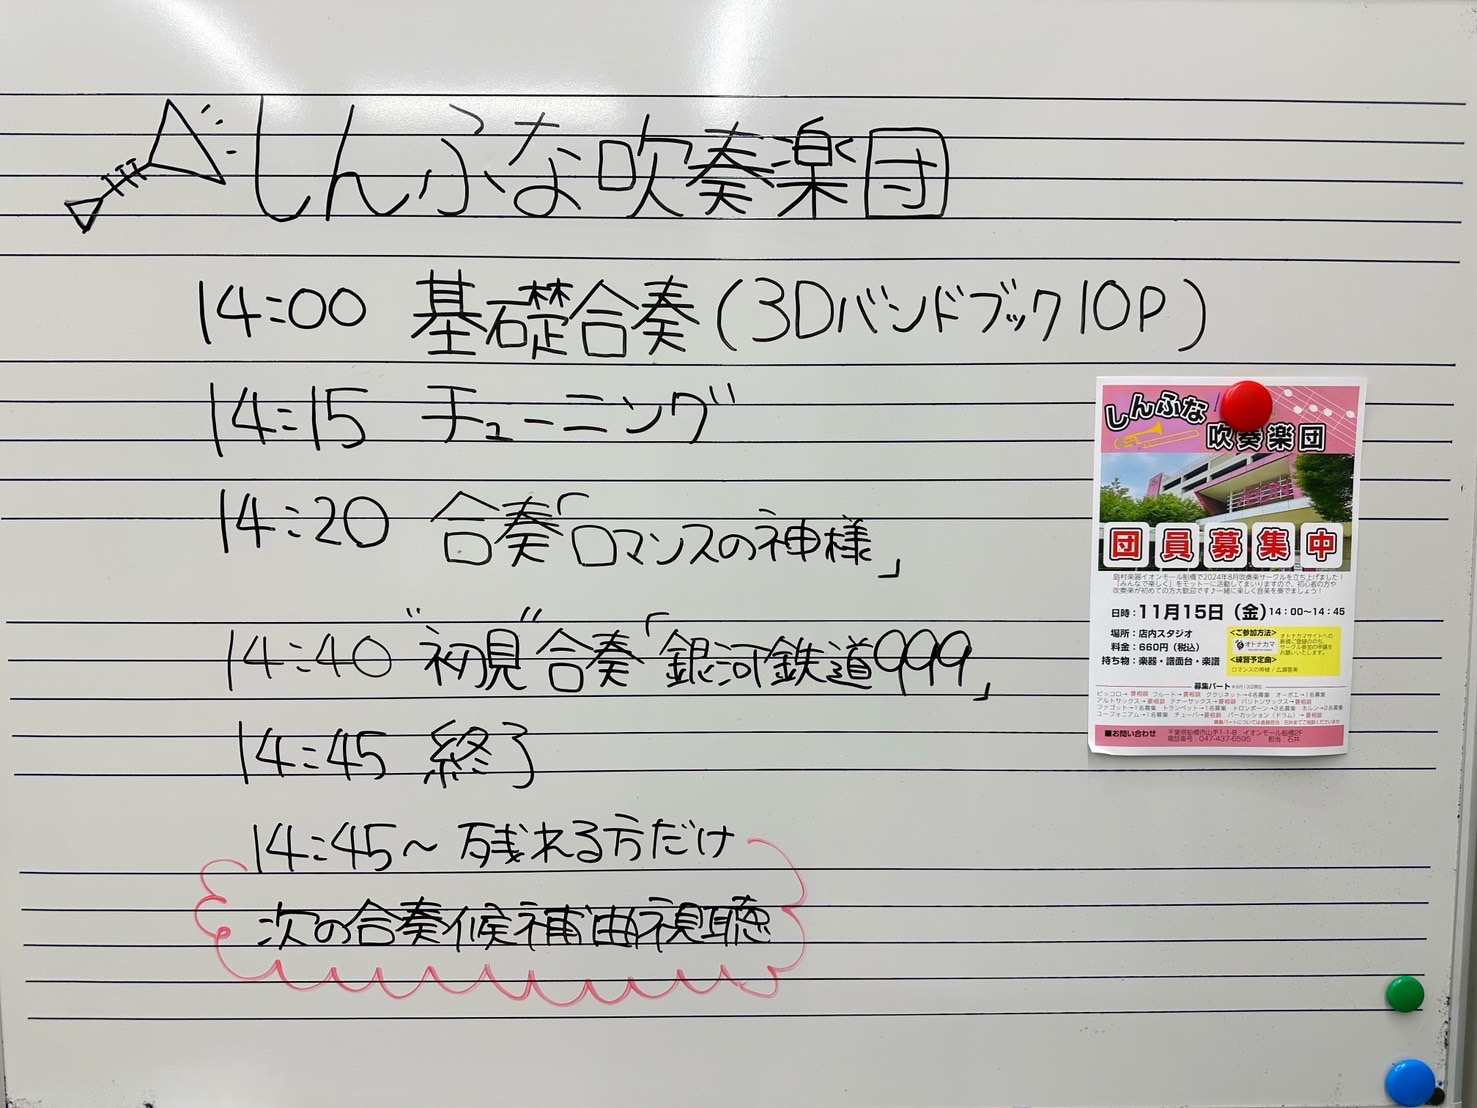 しんふな吹奏楽団
14:00 基礎合奏(3Dバンドブック10P)
14:15 チューニング
14:20 合奏「ロマンスの神様」
14:40 "初見"合奏「銀河鉄道999」
14:45 終了
14:45~ 残れる方だけ
次の合奏候補曲視聴
しんふな
吹奏楽団
団員募集中
島村楽器イオンモール船橋で2024年8月吹奏楽サークルを立ち上げました!
「みんなで楽しく」をモットーに活動してまいりますので、初心者の方や
吹奏楽が初めての方大歓迎です♪一緒に楽しく音楽を奏でましょう!
日時:11月15日(金)14:00~14:45
場所:店内スタジオ
料金:660円(税込)
持ち物:楽器・譜面台・楽譜
<ご参加方法>
オトナカマ
オトナカマサイトへの
新規ご登録ののち、
サークル参加の申請を
お願いいたします。
<練習予定曲>
ロマンスの神様/広瀬香美
募集パート
ピッコロ→要相談 フルート→要相談 クラリネット→4名募集 オーボエ→1名募集
アルトサックス→要相談 テナーサックス→要相談 バリトンサックス→要相談
ファゴット→1名募集 トランペット→1名募集 トロンボーン→2名募集 ホルン→2名募集
ユーフォニアム→1名募集 チューバ→要相談 パーカッション(ドラム)→要相談
■お問い合わせ 千葉県船橋市山手1-1-8 イオンモール船橋2F
電話番号 047-437-6595 担当:石井